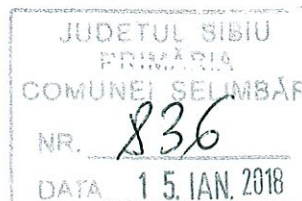 JUDETUL SIBIU
PRIMĂRIA
COMUNEI SELIMBĂR
NR. 836
DATA 15. IAN. 2018